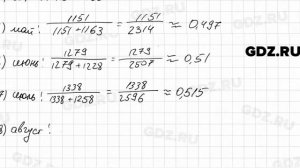 ) май: 1151/(1151+1163) = 1151/2314 ≈ 0,497
GDZ.RU
) июнь: 1279/(1279+1228) = 1279/2507 ≈ 0,51
7) июль: 1338/(1338+1258) = 1338/2596 ≈ 0,515
8) август:
GDZ.RU